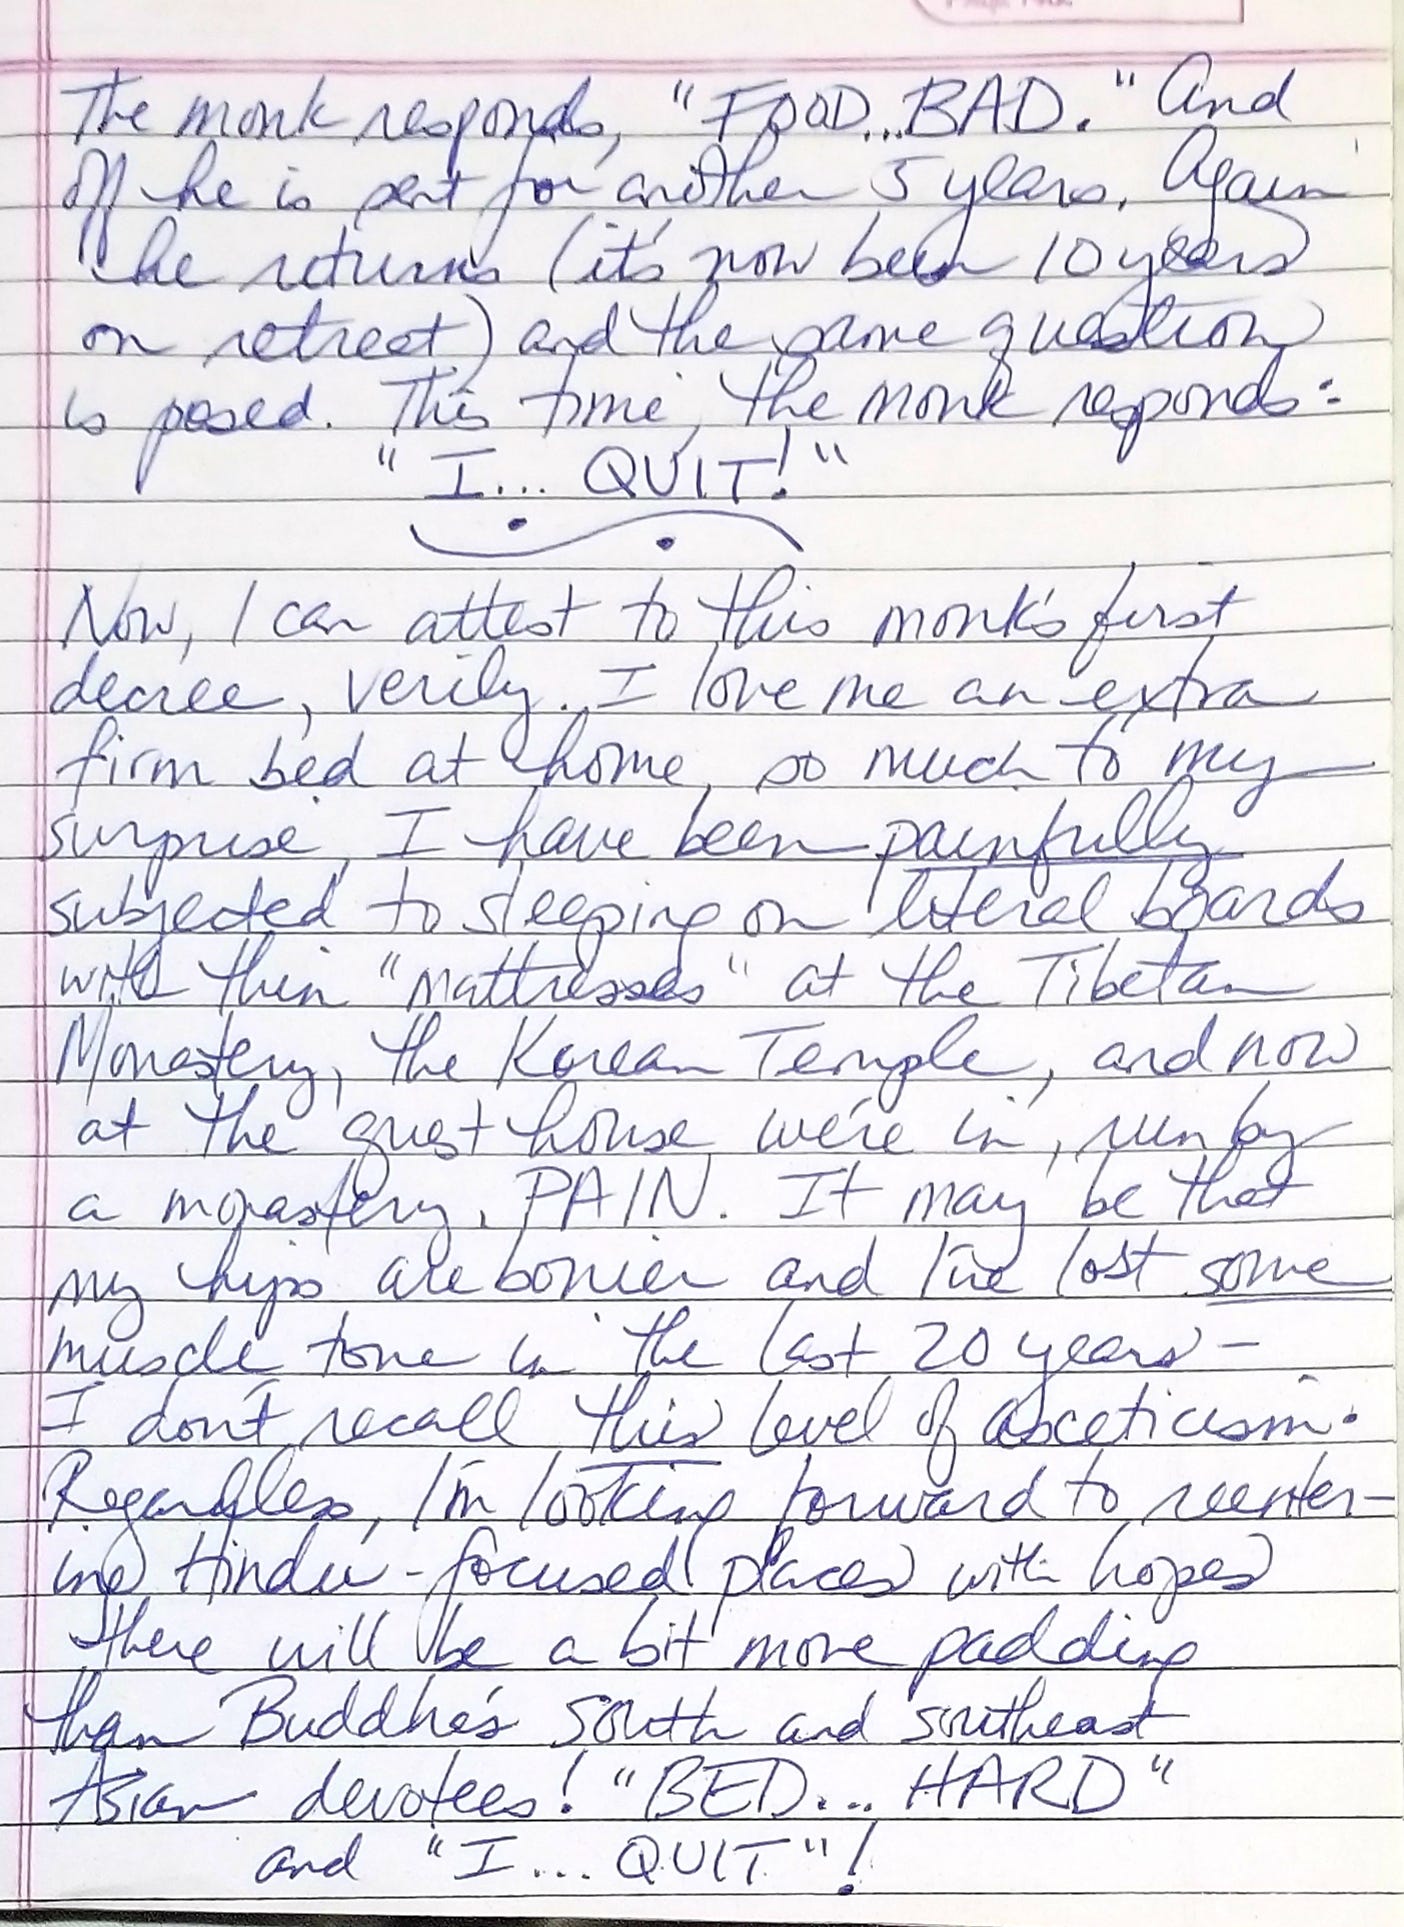 The monk responds, "FOOD...BAD." And
off he is sent for another 5 years. Again
he returns (it's now been 10 years
on retreat) and the same question
is posed. This time, the monk responds:
"I... QUIT!"
Now, I can attest to this monk's first
decree, verily. I love me an extra
firm bed at home, so much to my
surprise, I have been painfully
subjected to sleeping on literal boards
with thin "mattresses" at the Tibetan
Monastery, the Korean Temple, and now
at the guest house we're in, run by
a monastery. PAIN. It may be that
my hips are bonier and I've lost some
muscle tone in the last 20 years-
I don't recall this level of asceticism.
Regardless, I'm looking forward to reenter-
ing Hindu-focused places with hopes
there will be a bit more padding
than Buddha's South and southeast
Asian devotees! "BED... HARD"
and "I.... QUIT"!